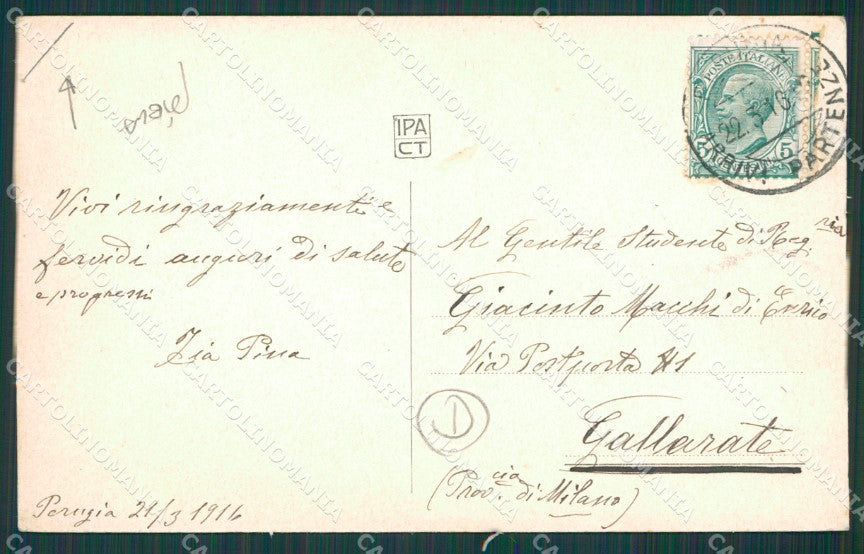 IPA
CT
POSTE ITALIANE
5
22.3.16
ARRIVI PARTENZ
Vivi ringraziamenti e
fervidi auguri di salute
e progressi
Zia Pina
Perugia 21/3 1916
Al Gentile Studente di Rag.ria
Giacinto Macchi di Enrico
Via Postporta
Gallarate
(Prov.cia di Milano)
D
CARTOLINOMANIA